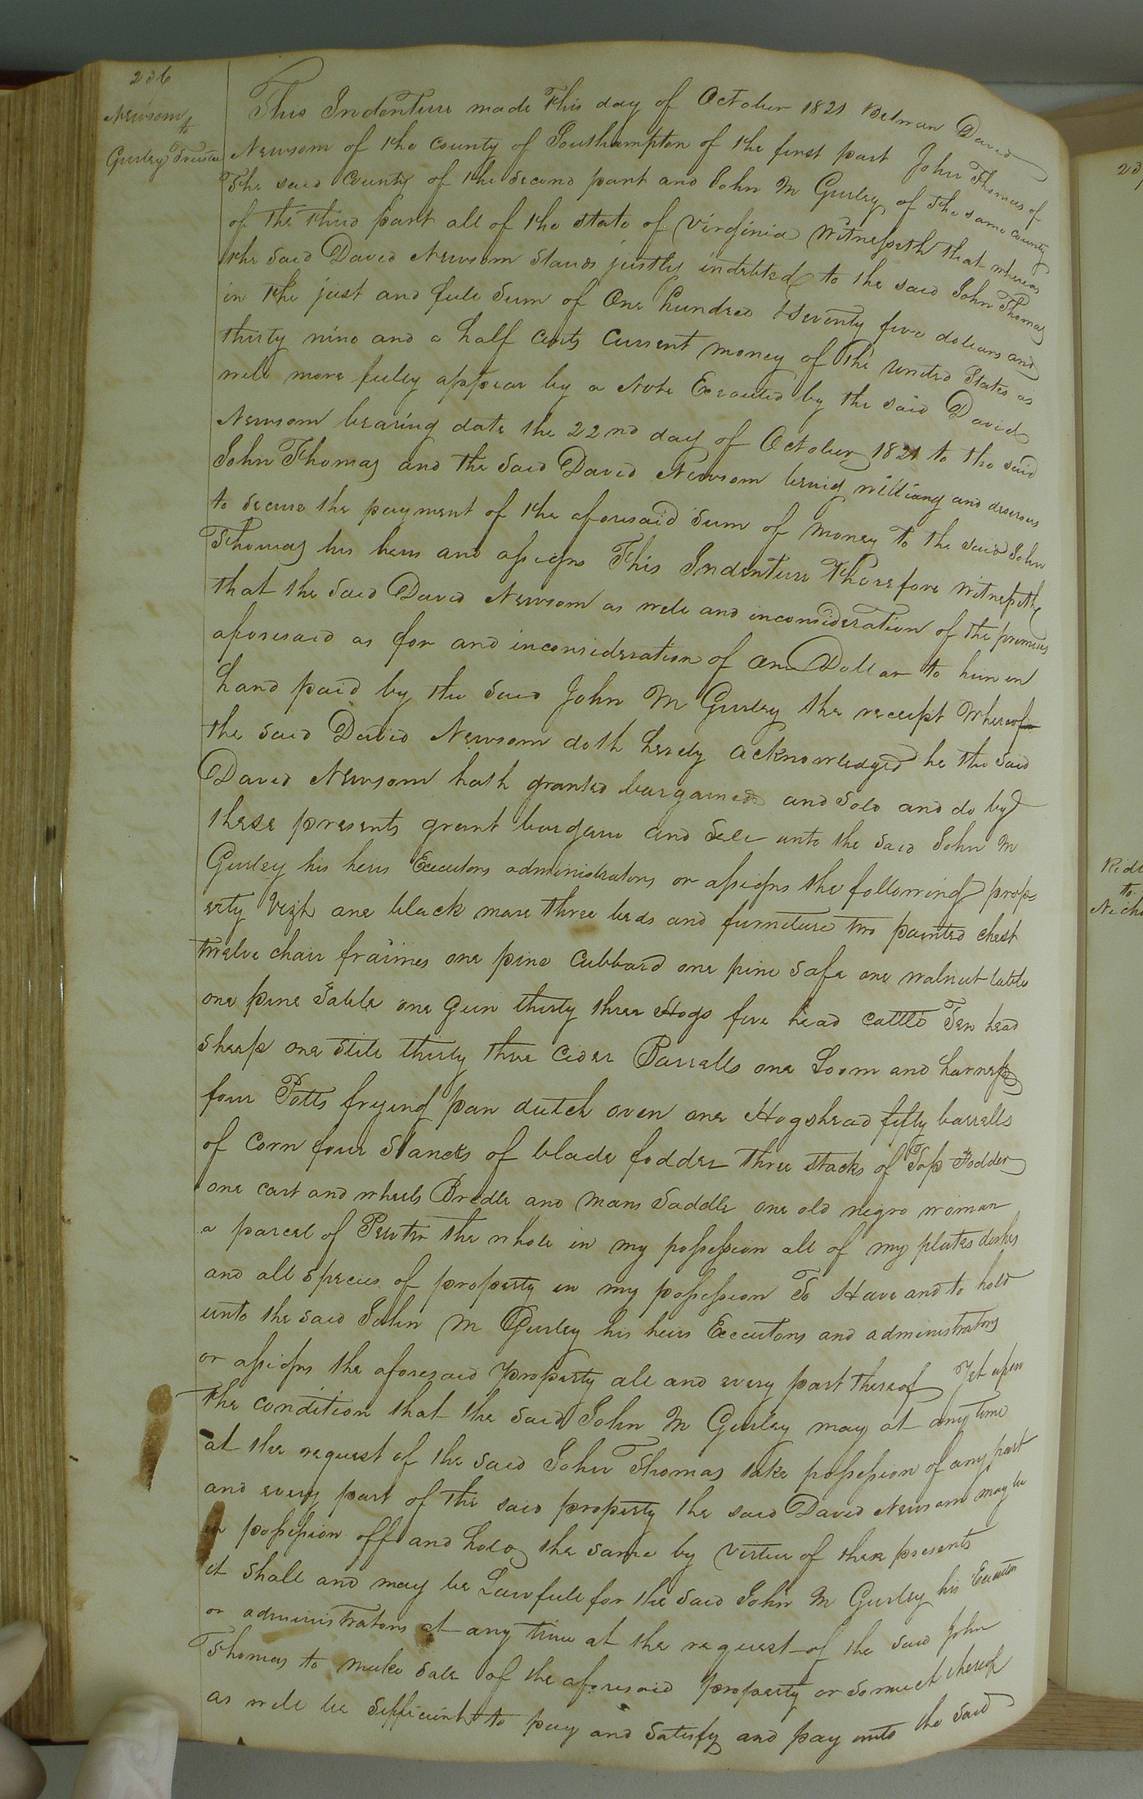 236
Newsom
to
Gurley Trustee
This Indenture made this day of October 1821 Between David
Newsom of the county of Southampton of the first part John Thomas of
the said County of the second part and John M Gurley of the same county
of the third part all of the state of Virginia Witnesseth that whereas
the said David Newsom stands justly indebted to the said John Thomas
in the just and full sum of One hundred & seventy five dollars and
thirty nine and a half cents current money of the United States as
will more fully appear by a Note Executed by the said David
Newsom bearing date the 22nd day of October 1821 to the said
John Thomas and the said David Newsom being willing and desirous
to secure the payment of the aforesaid sum of money to the said John
Thomas his heirs and assigns This Indenture Therefore witnesseth
that the said David Newsom as well and inconsideration of the premises
aforesaid as for and inconsideration of one Dollar to him in
hand paid by the said John M Gurley the receipt whereof
the said David Newsom doth hereby acknowledged he the said
David Newsom hath granted bargained and sold and do by
these presents grant bargain and sell unto the said John M
Gurley his heirs Executors administrators or assigns the following prop
erty Vizt one black mare three beds and furniture two painted chest
twelve chair fraimes one pine Cubbard one pine safe one walnut table
one pine Table one Gun thirty three Hogs five head cattle Ten head
sheep one still thirty three cider Barrells one Loom and harness
four Potts frying pan dutch oven one Hogshead fifty barrells
of corn four stancks of blade fodder three stacks of Top Fodder
one cart and wheels Bredle and mans Saddle one old negro woman
a parcel of Pewter the whole in my possession all of my plates dishes
and all species of property in my possession To Have and to hold
unto the said John M Gurley his heirs Executors and administrators
or assigns the aforesaid property all and every part thereof Yet upon
the condition that the said John M Gurley may at any time
at the request of the said John Thomas take possession of any part
and every part of the said property the said David Newsom may be
in possession off and hold the same by virtue of these presents
it shall and may be Lawfull for the said John M Gurley his Executors
or administrators at any time at the request of the said John
Thomas to make sale of the aforesaid property or somuch thereof
as will be sufficient to pay and satisfy and pay unto the said
23
to